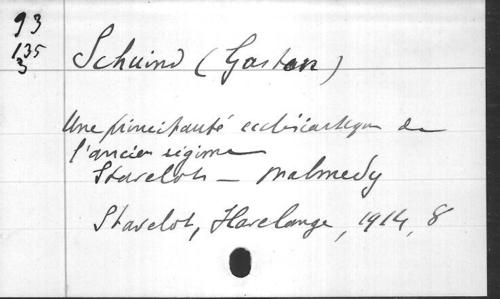 93
135
3
Schuind (Gaston)
Une principauté ecclésiastique de
l'ancien régime
Stavelot - Malmedy
Stavelot, Havelange, 1914, 8